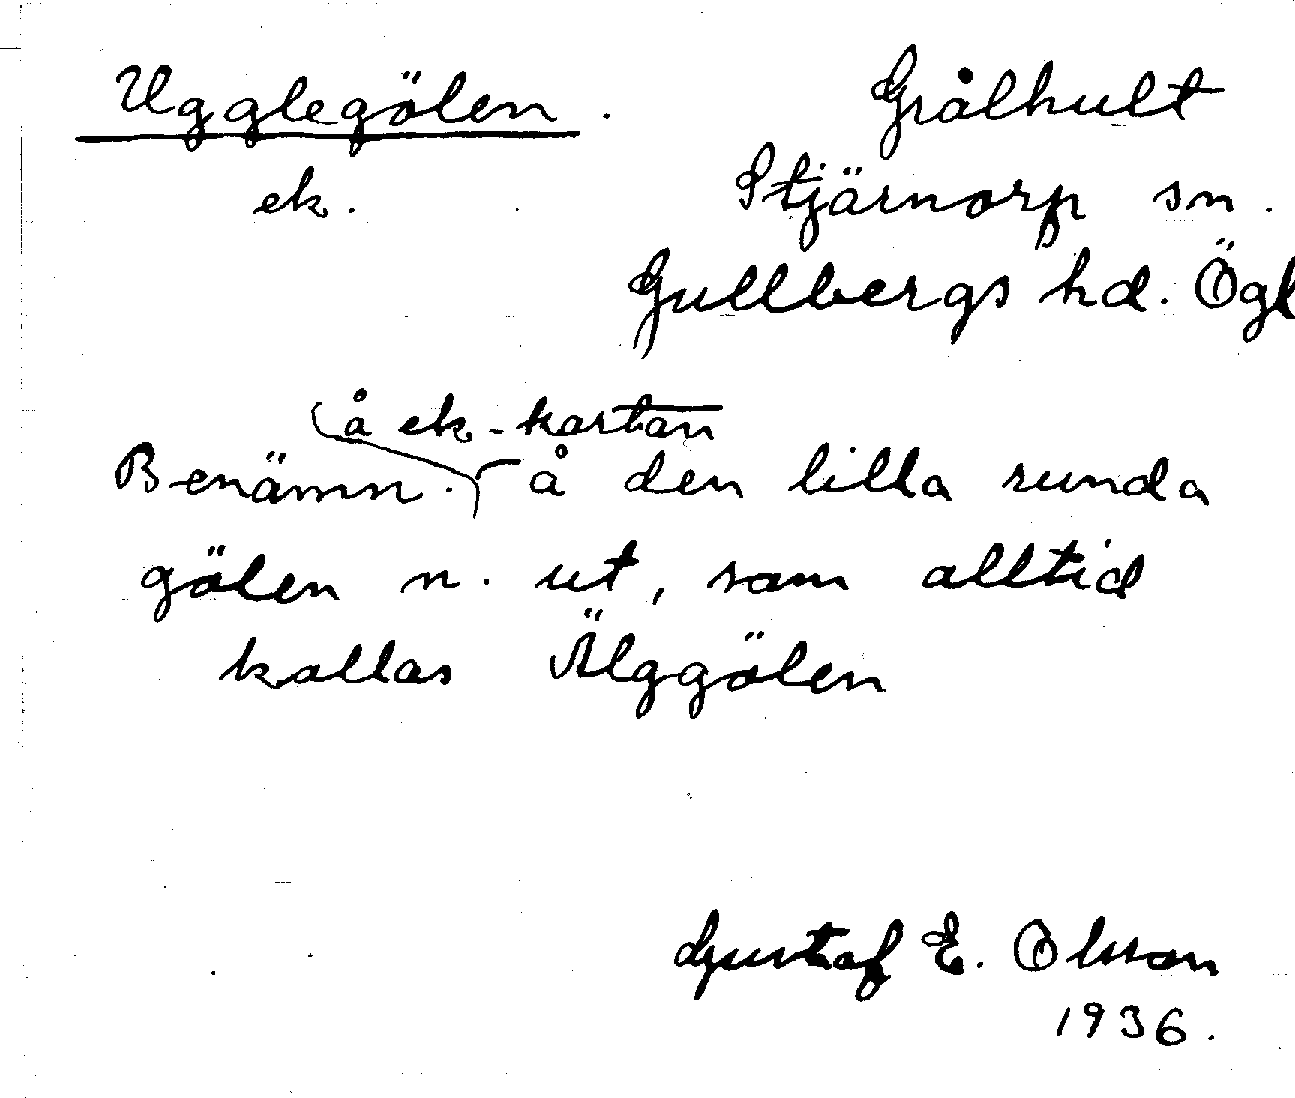 Ugglegölen.
ek.
Grålhult
Stjärnorp sn.
Gullbergs hd. Ögl
å ek-kartan
Benämn. å den lilla runda
gölen n. ut, som alltid
kallas Älggölen
Gustaf E. Olsson
1936.